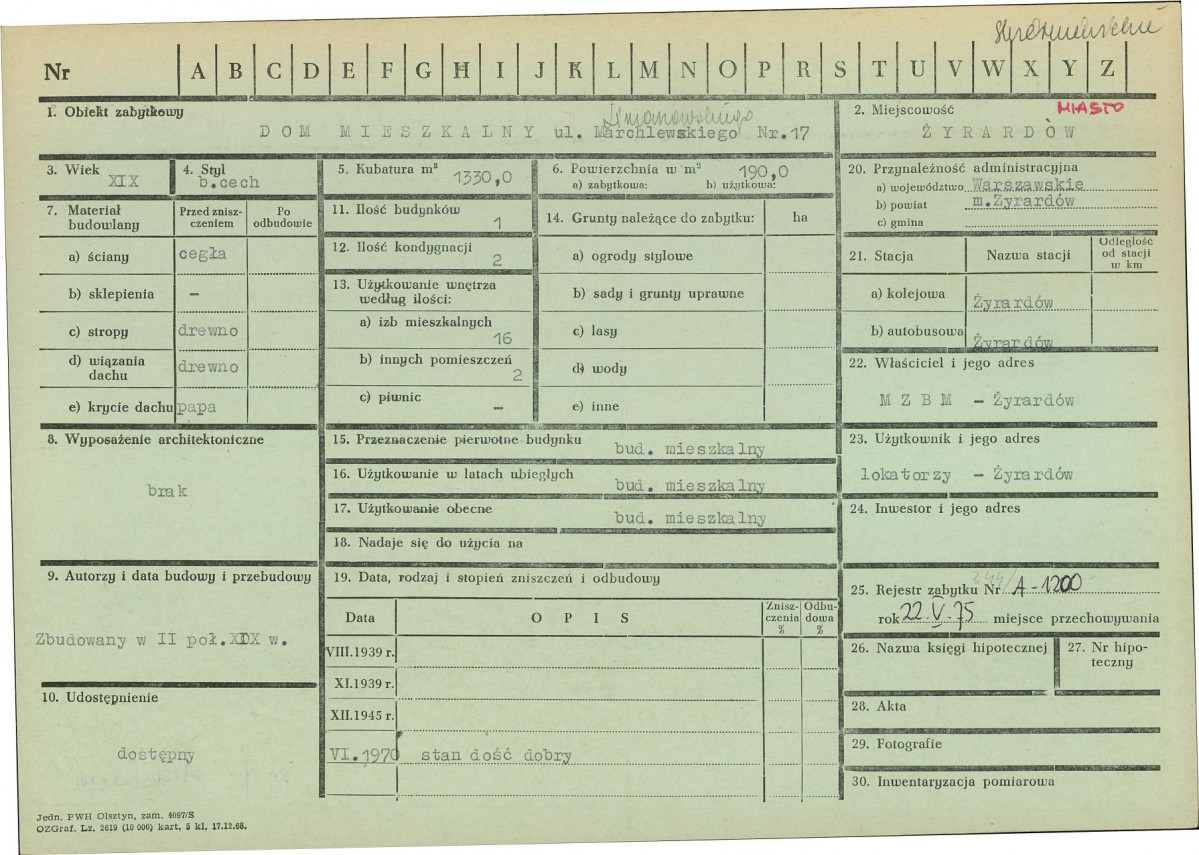 Nr A B C D E F G H I J K L M N O P R S T U V W X Y Z
1. Obiekt zabytkowy
DOM MIESZKALNY ul. Marchlewskiego Nr.17
2. Miejscowość MIASTO
ŻYRARDÓW
3. Wiek
XIX
4. Styl
b.cech
5. Kubatura m³
1330,0
6. Powierzchnia w m² 190,0
a) zabytkowa: b) użytkowa:
20. Przynależność administracyjna
a) województwo Warszawskie
b) powiat m.Żyrardów
c) gmina
7. Materiał budowlany
Przed zniszczeniem
Po odbudowie
a) ściany cegła
b) sklepienia –
c) stropy drewno
d) wiązania dachu drewno
e) krycie dachu papa
11. Ilość budynków
1
12. Ilość kondygnacji
2
13. Użytkowanie wnętrza
według ilości:
a) izb mieszkalnych
16
b) innych pomieszczeń
2
c) piwnic
–
14. Grunty należące do zabytku: ha
a) ogrody stylowe
b) sady i grunty uprawne
c) lasy
d) wody
e) inne
21. Stacja Nazwa stacji Odległość od stacji w km
a) kolejowa Żyrardów
b) autobusowa Żyrardów
22. Właściciel i jego adres
M Z B M – Żyrardów
8. Wyposażenie architektoniczne
brak
15. Przeznaczenie pierwotne budynku
bud. mieszkalny
16. Użytkowanie w latach ubiegłych
bud. mieszkalny
17. Użytkowanie obecne
bud. mieszkalny
18. Nadaje się do użycia na
23. Użytkownik i jego adres
lokatorzy – Żyrardów
24. Inwestor i jego adres
9. Autorzy i data budowy i przebudowy
Zbudowany w II poł.XIX w.
19. Data, rodzaj i stopień zniszczeń i odbudowy
Data OPIS Zniszczenia % Odbudowa %
VIII.1939 r.
XI.1939 r.
XII.1945 r.
VI.1970 stan dość dobry
25. Rejestr zabytku Nr A-1200
rok 22.V.75 miejsce przechowywania
26. Nazwa księgi hipotecznej
27. Nr hipoteczny
10. Udostępnienie
dostępny
28. Akta
29. Fotografie
30. Inwentaryzacja pomiarowa
Jedn. PWH Olsztyn, zam. 4097/S
OZGraf. Lz. 2619 (10 000) kart. 5 kl. 17.12.68.